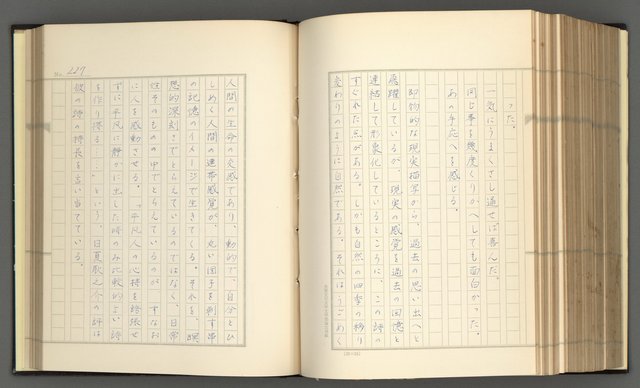 った。
一気にうまくさし通せば喜んだ。
同じ事を幾度くりかへしても面白かった。
あの手応へを感じる。
即物的な現実描写から、過去の思い出へと
飛躍しているが、現実の感覚を過去の回憶と
連結して形象化しているところに、この詩の
すぐれた点がある。しかも自然の四季の移り
変わりのように自然である。それはうごめく
No. 227
人間の生命の交感であり、動的で、自分とひ
しめく人間の連帯感覚が、丸い団子を刺す串
の記憶のイメージで生きてくる。それを
想的深刻さでとらえているのではなく、日常
性そのものの中でとらえているのが、すなお
に人を感動させる。「平凡人の心持を誇張せ
ずに平凡に静かに出した時のみ比較的よい詩
を作り得る……」という、日夏耿之介の評は
彼の詩の特長を言い当てている。